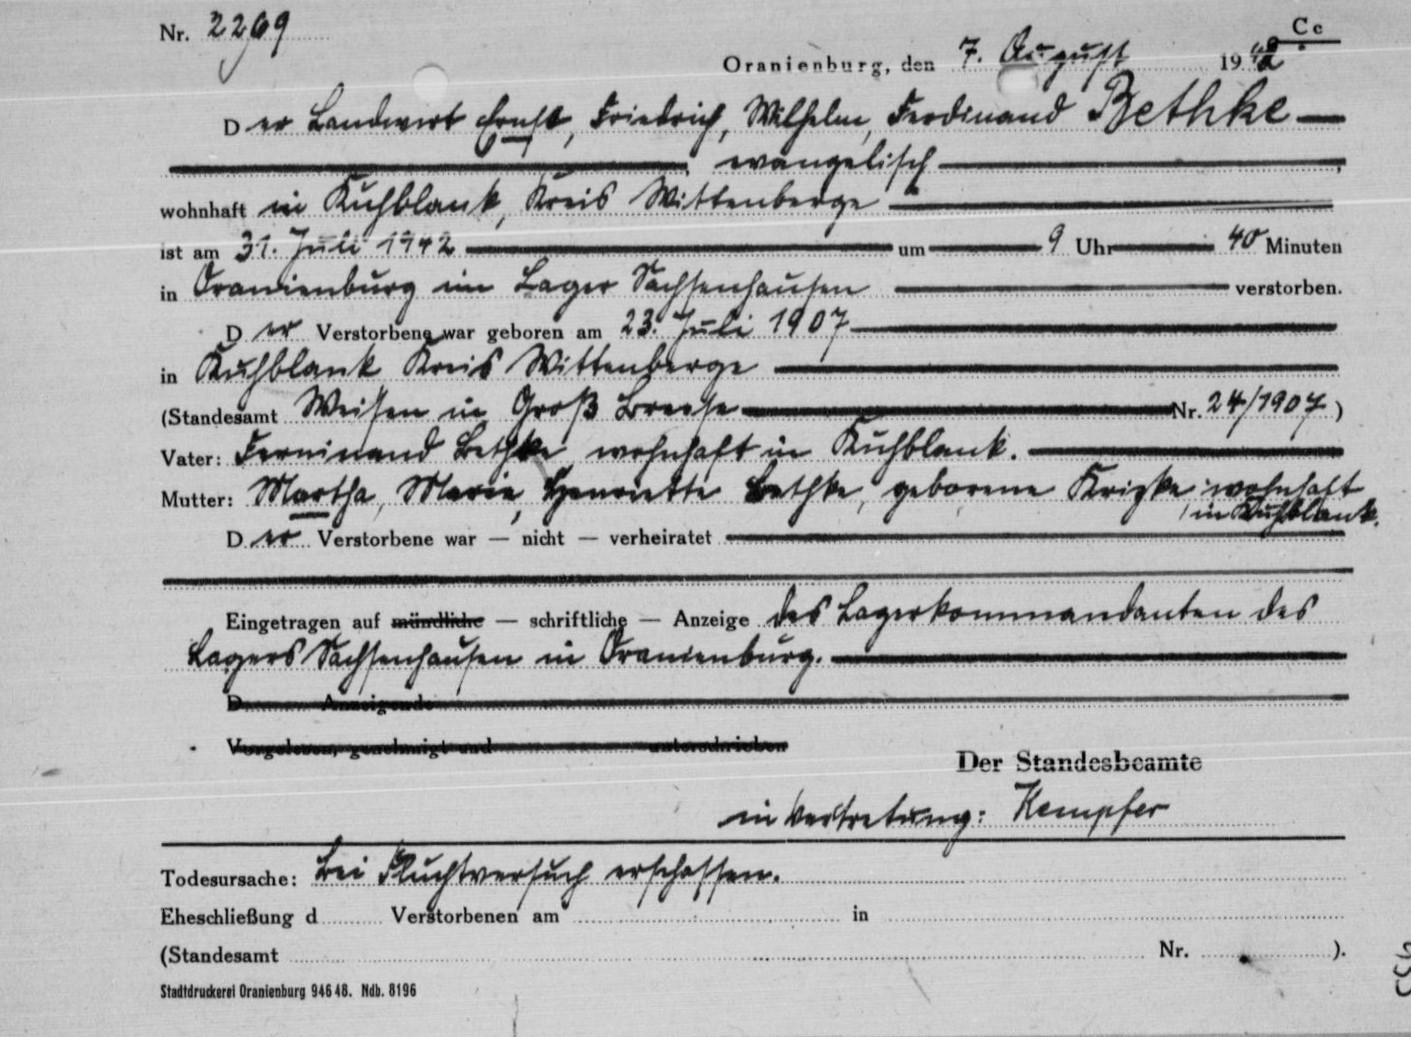 Nr. 2269
C c
Oranienburg, den 7. August 1942
Der Landwirt Ernst, Friedrich, Wilhelm, Ferdinand Bethke
evangelisch
wohnhaft in Kuhblank, Kreis Wittenberge
ist am 31. Juli 1942 um 9 Uhr 40 Minuten
in Oranienburg im Lager Sachsenhausen verstorben.
Der Verstorbene war geboren am 23. Juli 1907
in Kuhblank Kreis Wittenberge
(Standesamt Weisen in Groß Breese Nr. 24/1907)
Vater: Ferninand Bethke wohnhaft in Kuhblank.
Mutter: Martha, Marie, Henriette Bethke, geborene wohnhaft
in Kuhblank.
Der Verstorbene war — nicht — verheiratet
Eingetragen auf mündliche — schriftliche — Anzeige des Lagerkommandanten des
Lagers Sachsenhausen in Oranienburg.
D Anzeigende
Vorgelesen, genehmigt und unterschrieben
Der Standesbeamte
in Vertretung: Kempfer
Todesursache: Bei Fluchtversuch erschossen.
Eheschließung d Verstorbenen am in
(Standesamt Nr. ).
Stadtdruckerei Oranienburg 946 48. Ndb. 8196